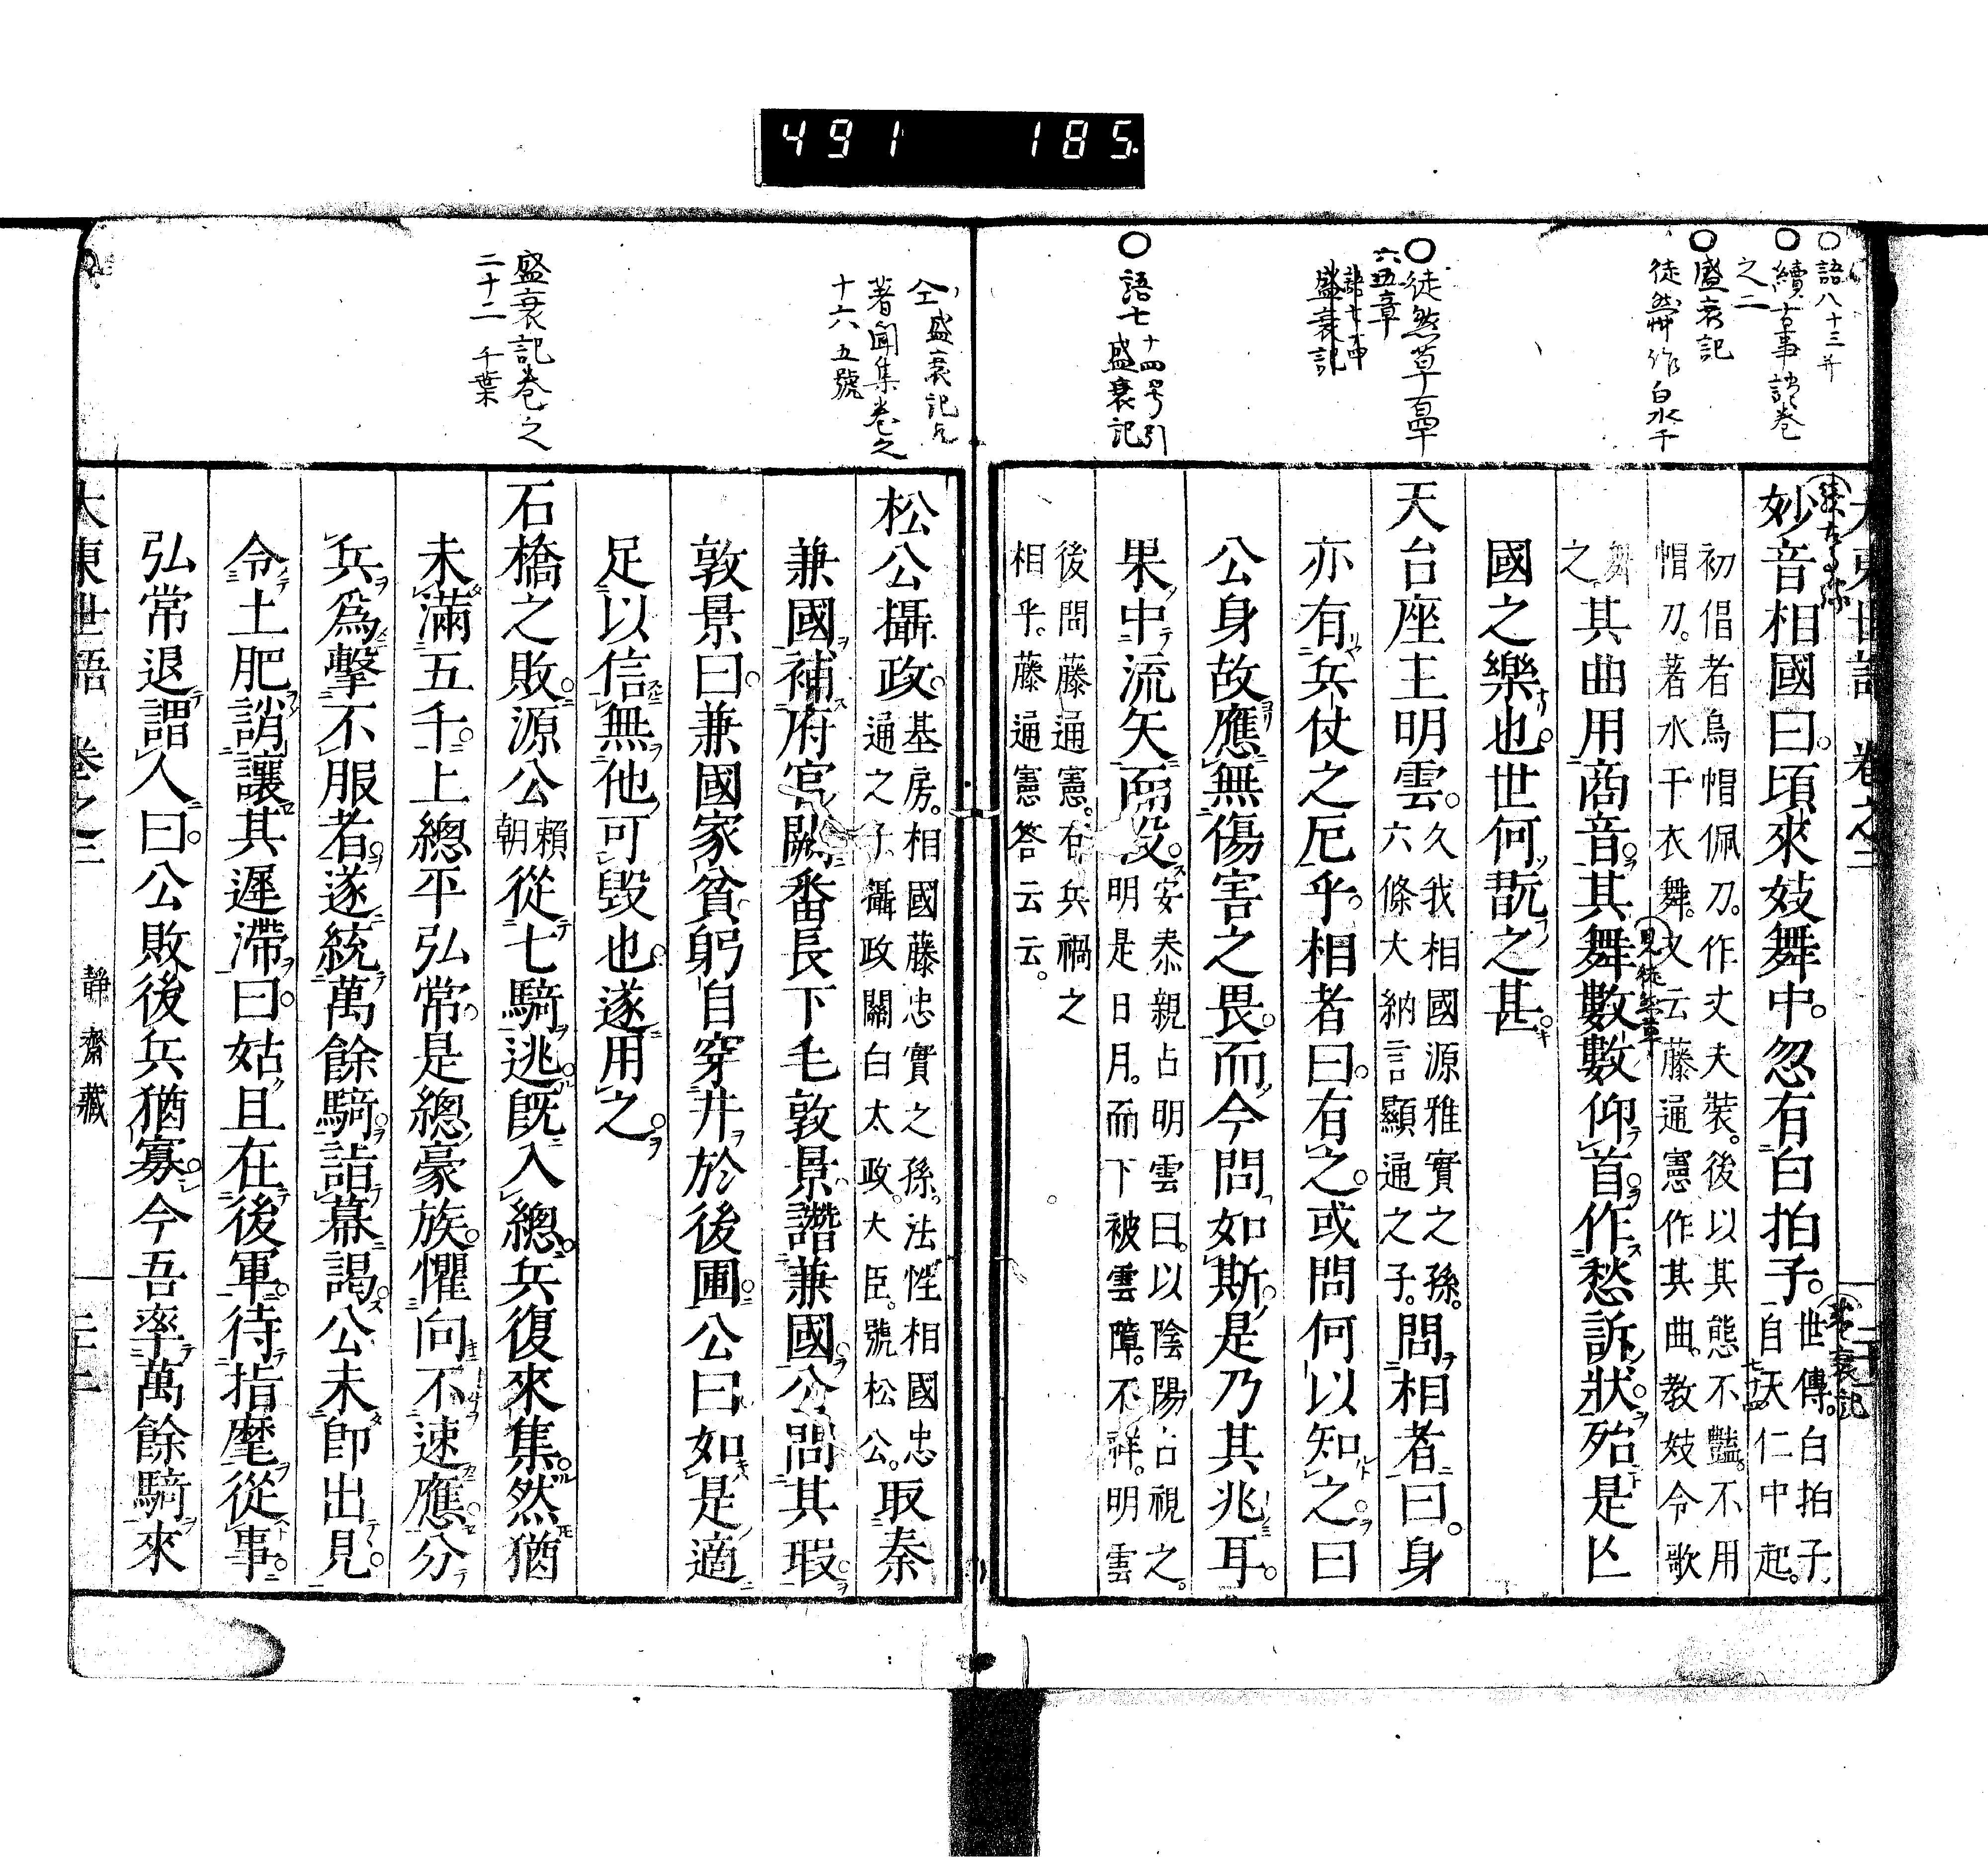 491 185
○語八十三并
○續古事談卷
之二
○盛衰記
徒然艸作白水干
○徒然草下百四章
六五章
盛衰記
○語七十四号引
盛衰記
妙音相國曰。頃來妓舞中。忽有白拍子。世傳。白拍子、
自天仁中起。
初倡者烏帽佩刀。作丈夫裝。後以其態不豔。不用
帽刀。著水干衣舞。又云藤通憲作其曲。教妓令歌
舞
之。其曲用商音。其舞數數仰首。作愁訴狀。殆是亡
國之樂也。世何翫之甚。
天台座主明雲。久我相國源雅實之孫。
六條大納言顯通之子。問相者曰。身
亦有兵仗之厄乎。相者曰。有之。或問何以知之。曰
公身故應無傷害之畏。而今問如斯。是乃其兆耳。
果中流矢而歿。安泰親占明雲曰。以陰陽占視之。
明是日月。而下被雲障。不祥。明雲
後問藤通憲。有兵禍之
相乎。藤通憲答云云。
見徒然草
盛衰記
七十四
仝盛衰記
著聞集卷之
十六 五號
盛衰記卷之
二十二 千葉
松公攝政。基房。相國藤忠實之孫。法性相國忠
通之子。攝政關白太政大臣。號松公。取秦
兼國補府官闕。番長下毛敦景譖兼國。公問其瑕
敦景曰。兼國家貧。躬自穿井於後圃。公曰如是適
足以信無他。可毀也。遂用之。
石橋之敗。源公賴
朝從七騎逃。既入總。兵復來集。然猶
未滿五千。上總平弘常。是總豪族。懼向不速應分
兵爲擊不服者。遂統萬餘騎詣幕謁。公未即出見。
令土肥誚讓其遲滯。曰。姑且在後軍。待指麾從事。
弘常退謂人曰。公敗後兵猶寡。今吾率萬餘騎來
大東世語 卷之二 靜齋藏